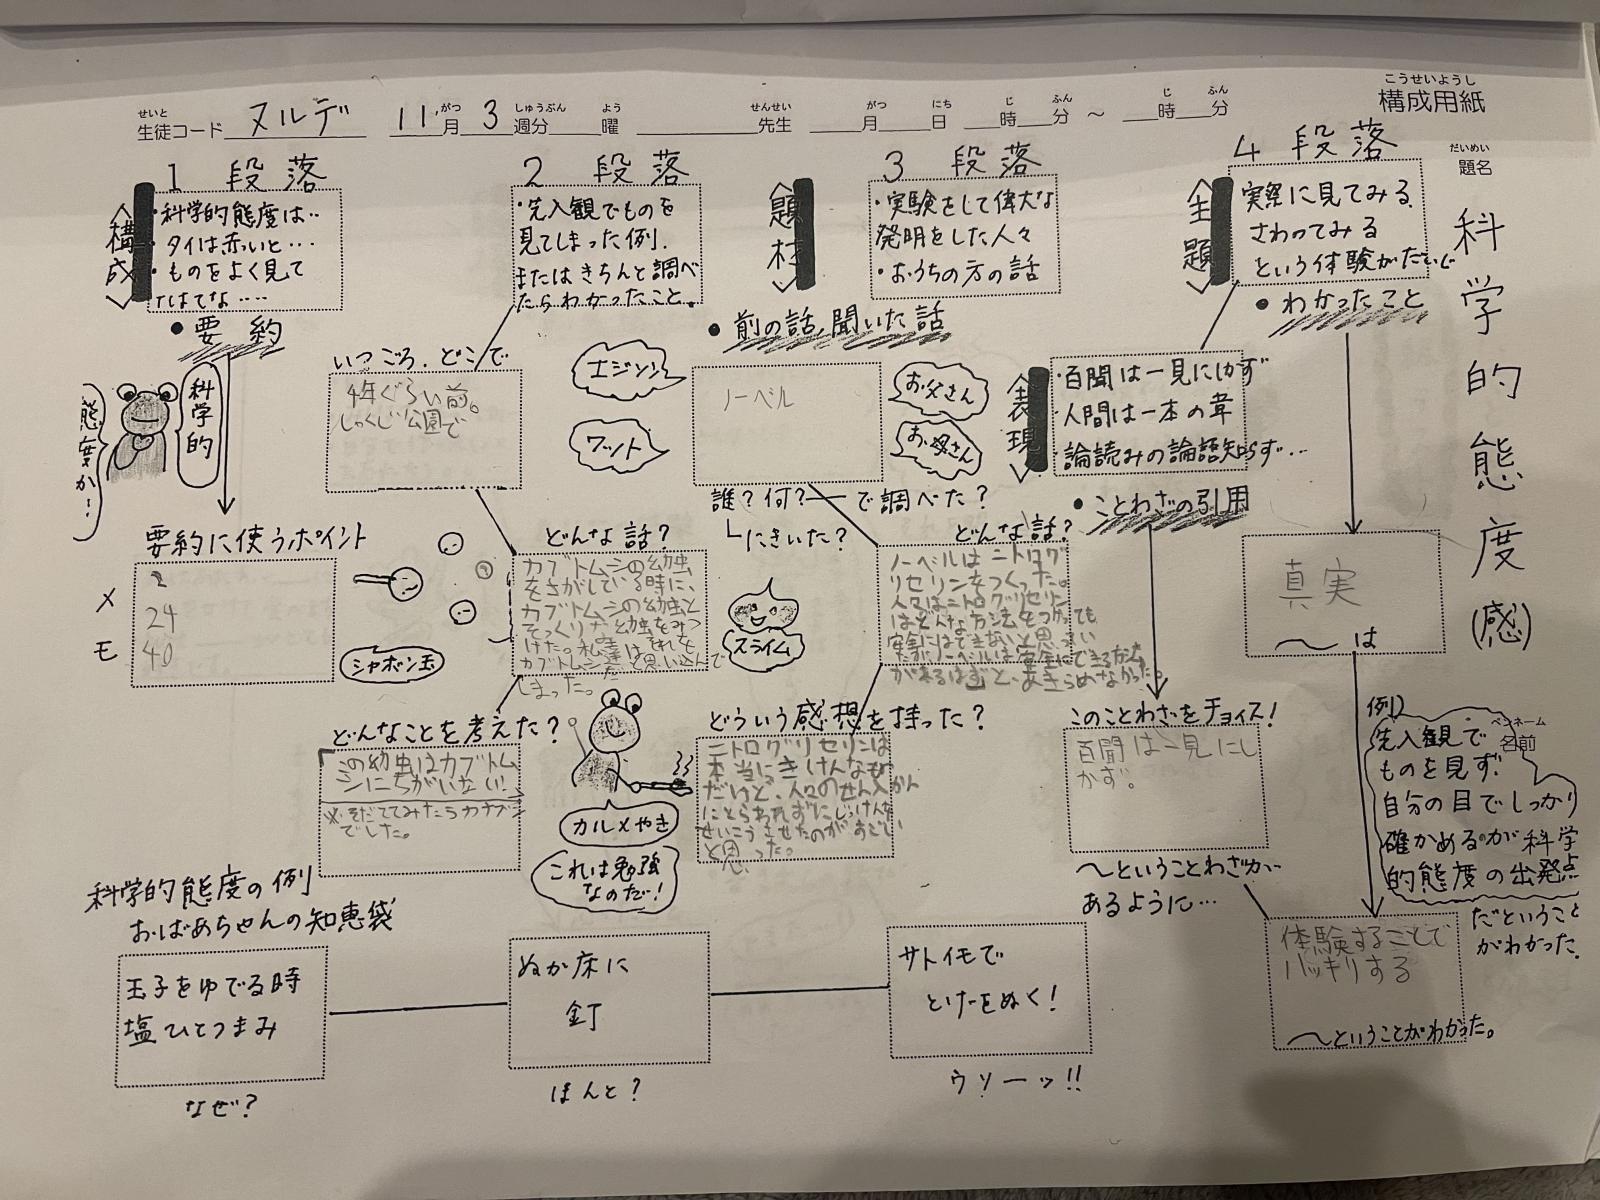 こうせいようし
構成用紙
せいと
生徒コード ヌルデ 11月 3週分 曜 先生 月 日 時 分 〜 時 分
がつ しゅうぶん よう せんせい がつ にち じ ふん じ ふん
だいめい
題名
科学的態度(感)
ペンネーム
名前
1 段落
〈構成〉
・科学的態度は‥
・タイは赤いと‥‥
・ものをよく見て
はてな‥‥
・要約
科学的
態度か!
要約に使うポイント
メモ
2
24
40
シャボン玉
2 段落
・先入観でものを
見てしまった例.
またはきちんと調べ
たらわかったこと。
いつごろ、どこで
4年ぐらい前。
しゃくじい公園で
どんな話?
カブトムシの幼虫
をさがしている時に、
カブトムシの幼虫と
そっくりな幼虫をみつ
けた。私達はそれを
カブトムシだと思い込んで
しまった。
どんなことを考えた?
この幼虫はカブトム
シにちがいない!
※そだててみたらカナブン
でした。
カルメやき
これは勉強
なのだ!
〈題材〉
3 段落
・実験をして偉大な
発明をした人々
・おうちの方の話
・前の話、聞いた話
エジソン
ワット
ノーベル
お父さん
お母さん
誰?何?―で調べた?
にきいた?
どんな話?
ノーベルはニトログ
リセリンをつくった。
人々はニトログリセリン
はどんな方法をつかっても
安全にはできないと思って
だがノーベルは安全にできる方法
があるはずと、あきらめなかった。
スライム
どういう感想を持った?
ニトログリセリンは
本当にきけんなもの
だけど、人々のせん入かん
にとらわれずにじっけんを
せいこうさせたのがすごい
と思った。
〈主題〉
4 段落
実際に見てみる
さわってみる
という体験がだいじ
・わかったこと
〈表現〉
・百聞は一見にしかず
・人間は一本の葦
・論語読みの論語知らず‥
・ことわざの引用
このことわざをチョイス!
百聞は一見にし
かず。
〜ということわざが‥
あるように…
真実
〜は
例)
先入観で
ものを見ず
自分の目でしっかり
確かめるのが科学
的態度の出発点
だということ
がわかった.
体験することで
ハッキリする
〜ということがわかった。
科学的態度の例
おばあちゃんの知恵袋
玉子をゆでる時
塩ひとつまみ
なぜ?
ぬか床に
釘
ほんと?
サトイモで
とげをぬく!
ウソーッ!!